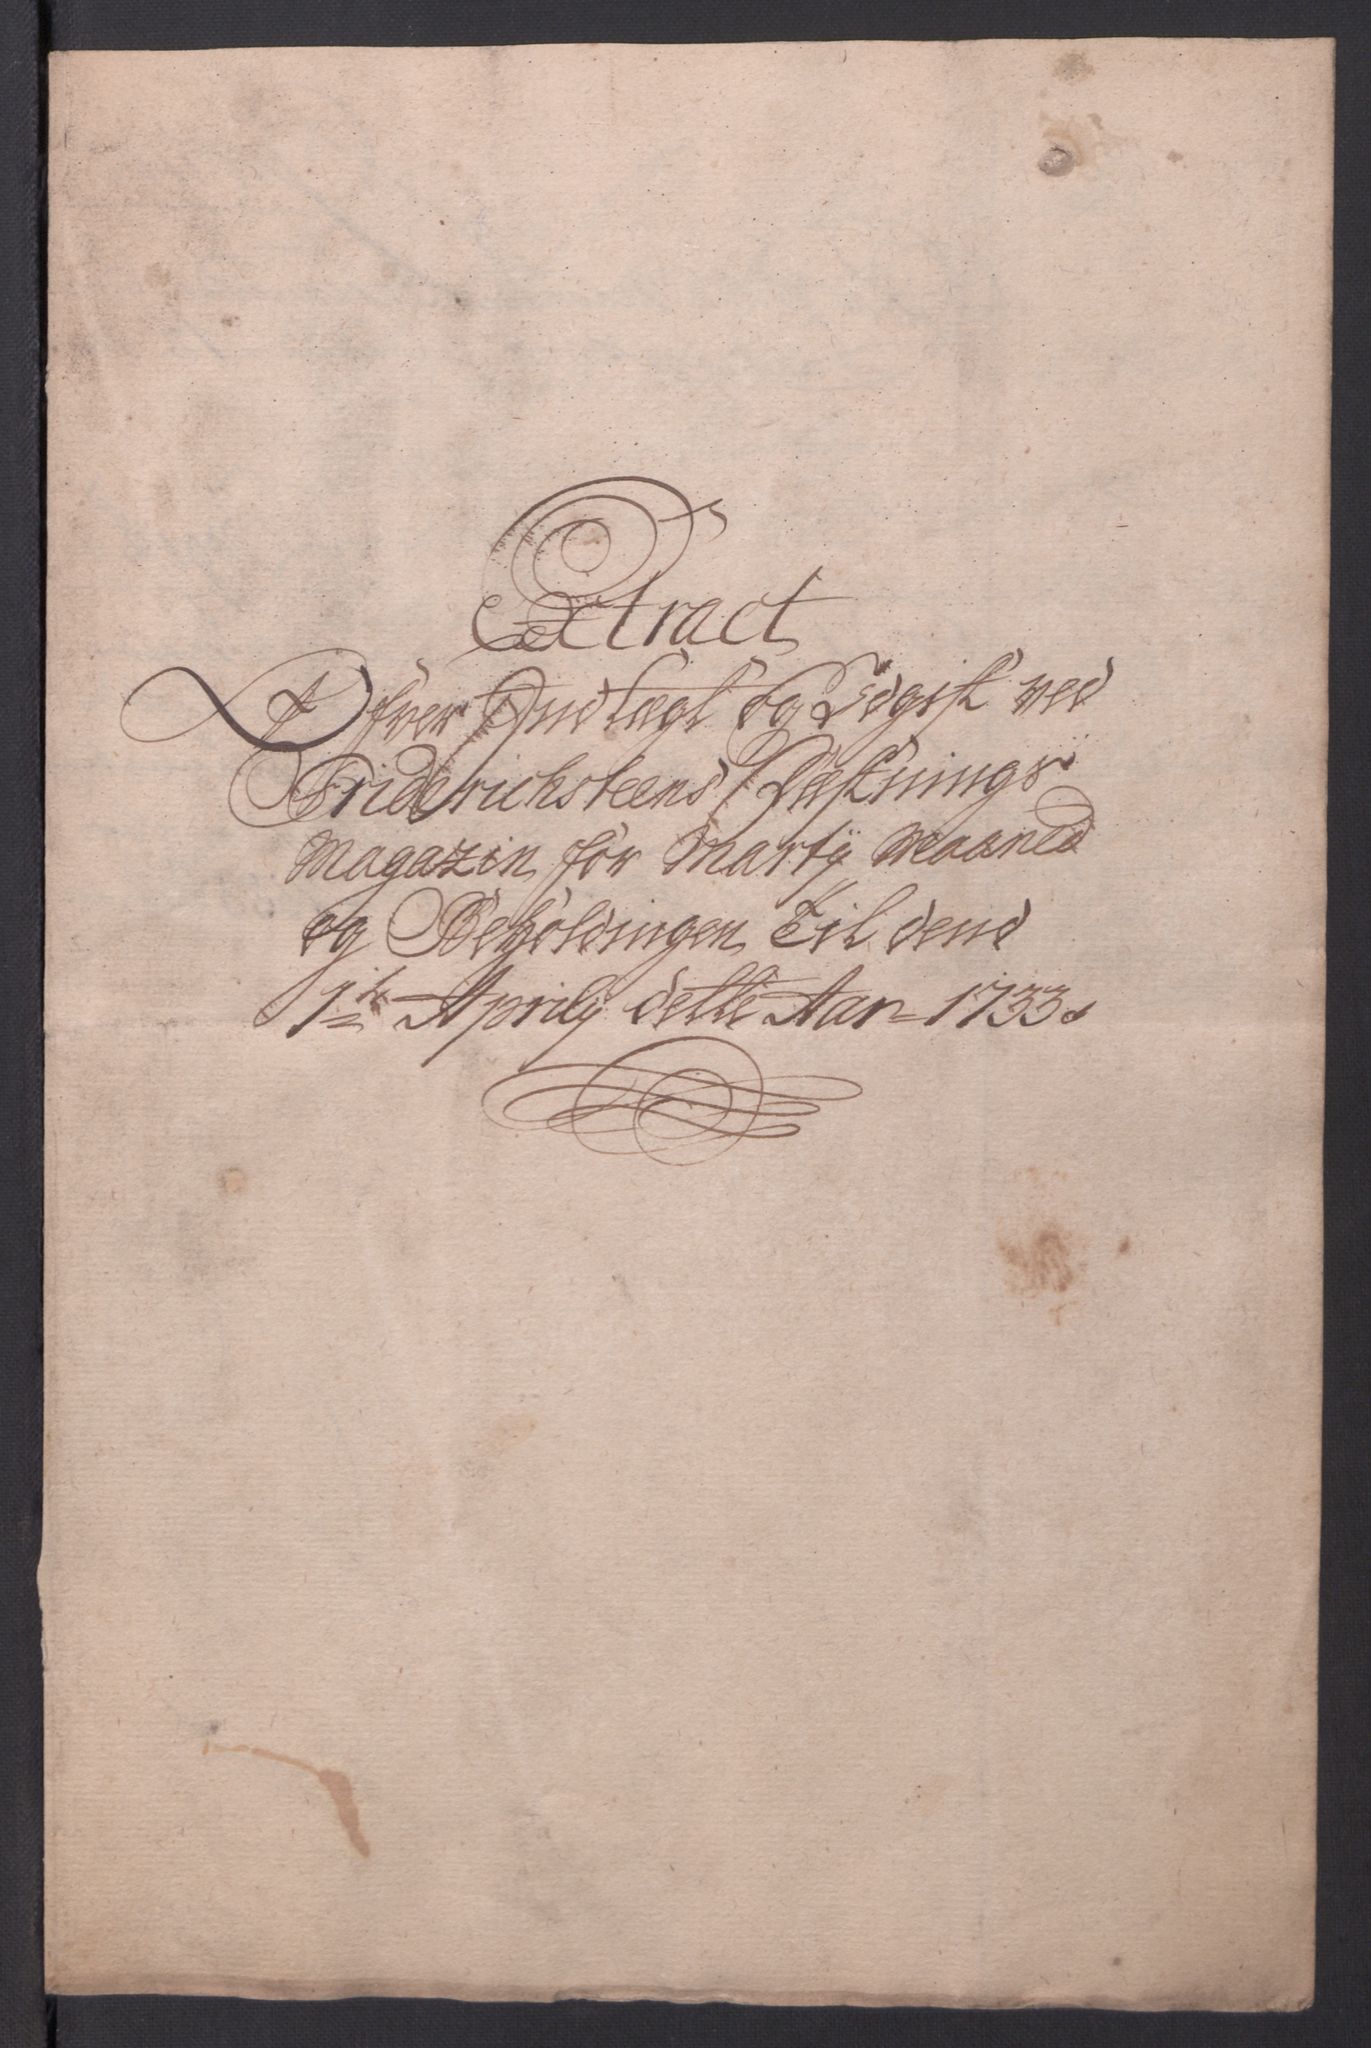 Extract
Ofver Indtægt og Udgift ved
Friderichsteens Fæstnings
Magazin for Martÿ Maaned
og Beholdingen Til dend
1te Aprilÿ dette Aar 1733.